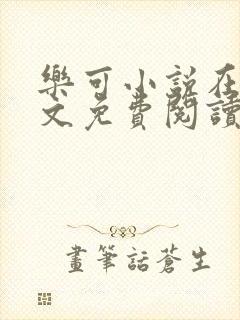 樂可小說在
文免費閱讀
畫筆話蒼生